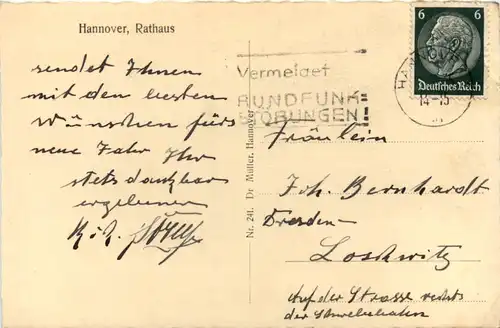 Hannover, Rathaus
sendet Ihnen
mit den besten
Wünschen fürs
neue Jahr Ihr
stets dankbar
ergebener
Nr. 241. Dr Müller, Hannover
Vermeidet
RUNDFUNK
STÖRUNGEN!
HAN
14-15
6 6
Deutsches Reich
Fräulein
Joh. Bernhardt
Dresden-
Loschwitz
Auf der Strasse rechts
der Schwebebahn